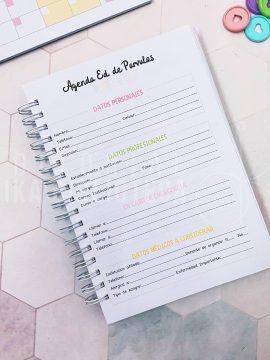 Agenda Ed. de Párvulos
DATOS PERSONALES
Nombre:
Teléfono: Celular:
E-Mail:
Dirección:
DATOS PROFESIONALES
Establecimiento o institución:
Dirección: Fono:
Mi cargo:
Correo Institucional:
Curso a cargo:
EN CASO DE EMERGENCIA
Llamar a:
Teléfono:
Llamar a:
Teléfono:
DATOS MÉDICOS A CONSIDERAR
Institución afiliada: Donante de órgano: Si No
Teléfono:
Alergia a: Enfermedad Importante:
Tipo de sangre: